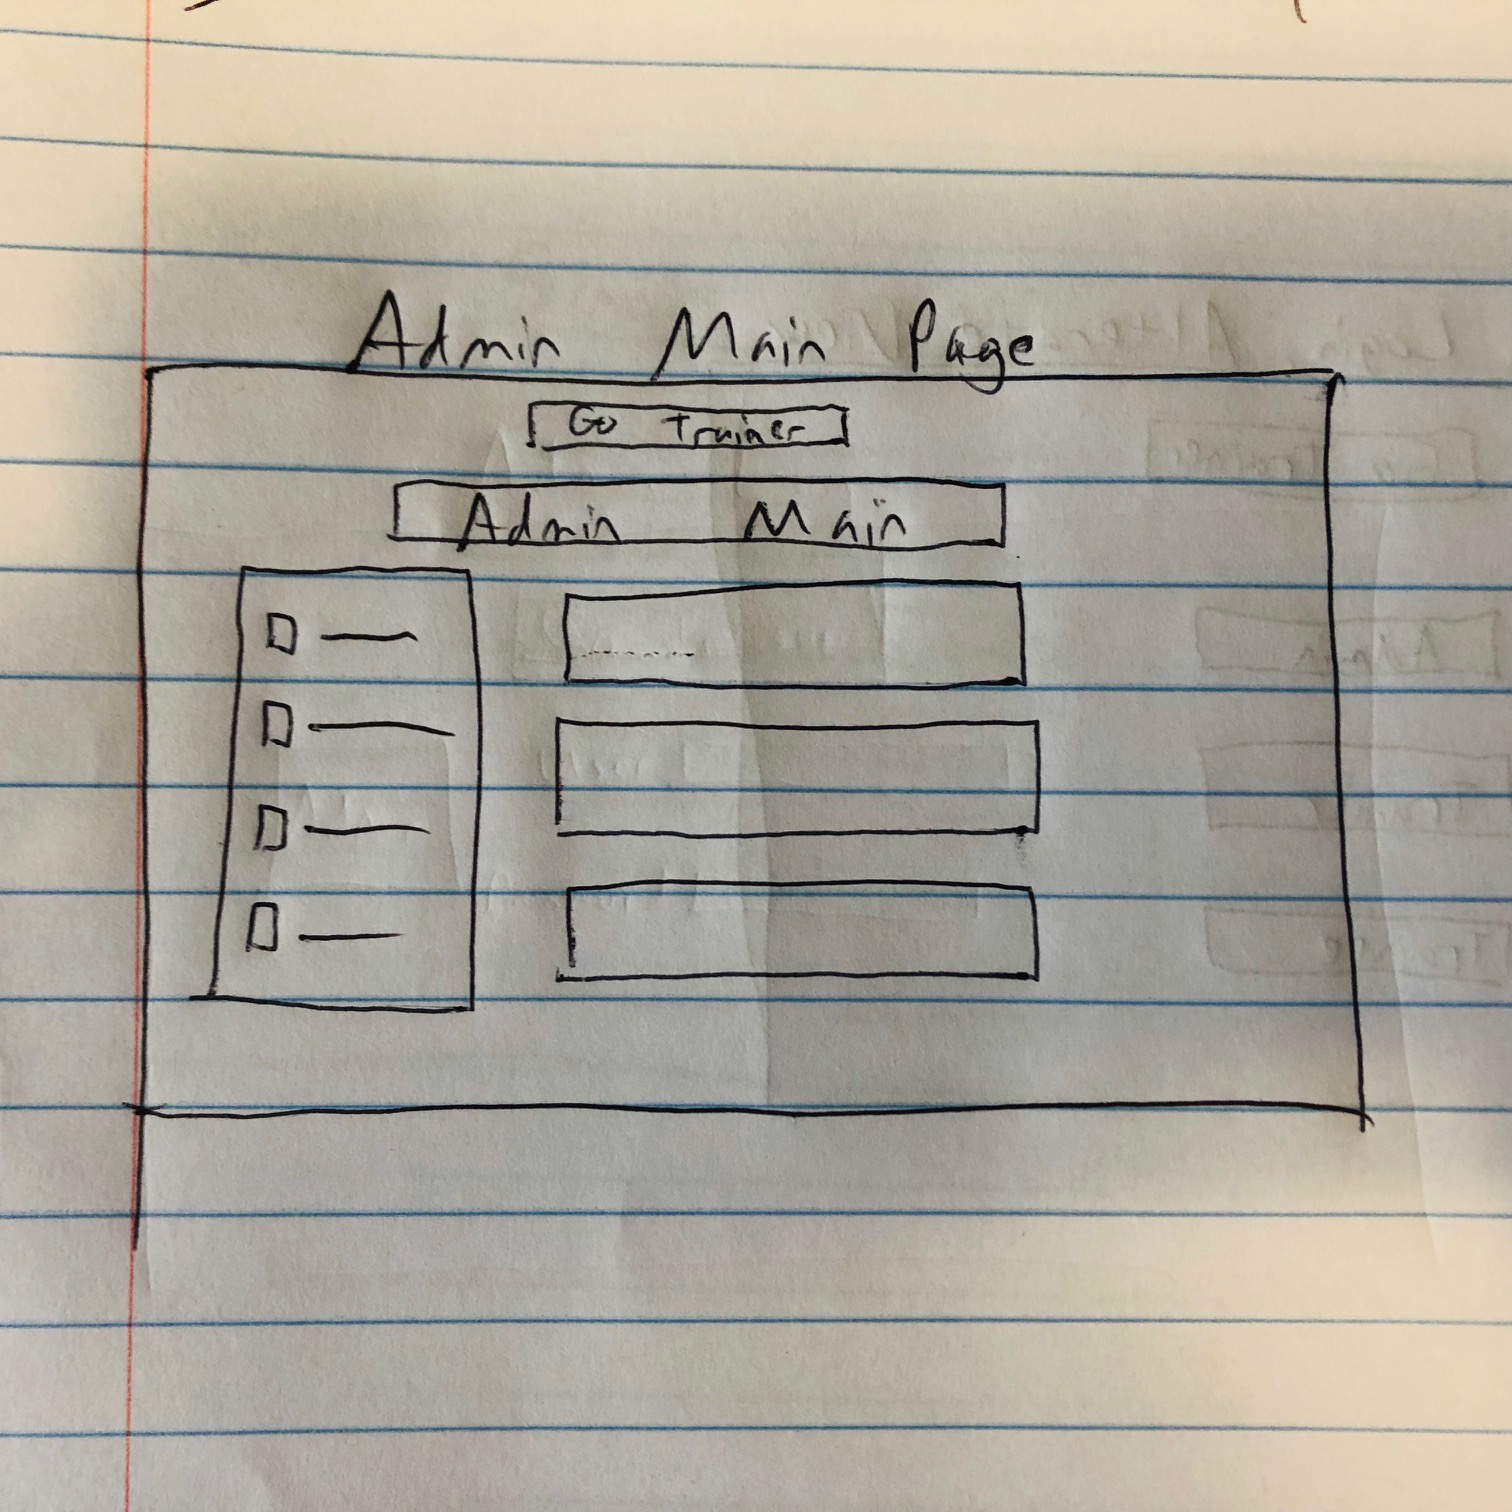 Admin Main Page
Go Trainer
Admin Main